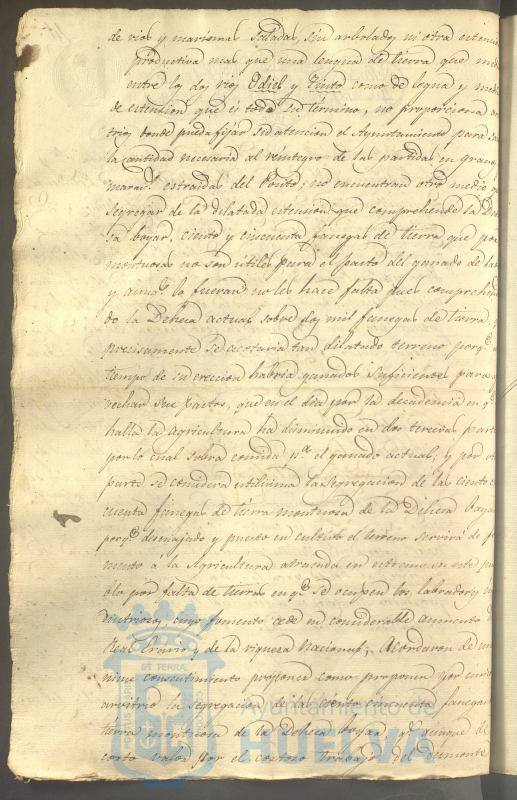 de rios y marismas saladas, sin arbolado, ni otra estencio
productiva mas que una lengua de tierra que med
entre los dos rios Odiel y Tinto como de legua y media
de estension que es todo su término, no proporciona ar
trio donde pueda fijar su atencion el Ayuntamiento para
la cantidad necesaria al reintegro de las partidas en grano
marav.s estraidas del Posito; no encuentran otro medio q
segregar de la dilatada estension que comprehende la Dehe
sa boyar, ciento y cincuenta fanegas de tierra que por
montuosas no son utiles para el pasto del ganado de la
y aunq.e lo fueran no les hace falta pues comprehen
do la Dehesa actual sobre dos mil fanegas de tierra
precisamente se acotaria tan dilatado terreno porq.e a
tiempo de su ereccion habria ganados suficientes para
vechar sus pastos, que en el dia por la decadencia en q.e
halla la agricultura ha disminuido en dos terceras parte
por lo cual sobra comida p.a el ganado actual, y por ot
parte se considera utilisima la segregacion de las ciento
cuenta fanegas de tierra montuosa de la Dehesa boya
porq.e desmajado y puesto en cultivo el terreno servirá de fo
mento á la Agricultura atrasada en estremo en este pue
blo por falta de tierras en q.e se ocupen los labradores y
dustriosos, cuyo fomento cede en considerable aumento
Real Erario y de la riqueza Nacional; Acordaron de un
nime consentimiento proponer como proponian por unico
arvitrio la segregacion de las ciento cincuenta fanegas
tierra montuosa de la Dehesa boyar, q.e aunque de
corto valor por el costoso trabajo del desmonte
PORTUS MARIS
ET TERRAE
CUSTODIA
Ayuntamiento de
HUELVA